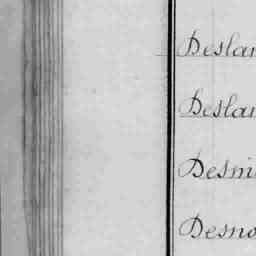 Deslan
Deslan
Desni
Desno